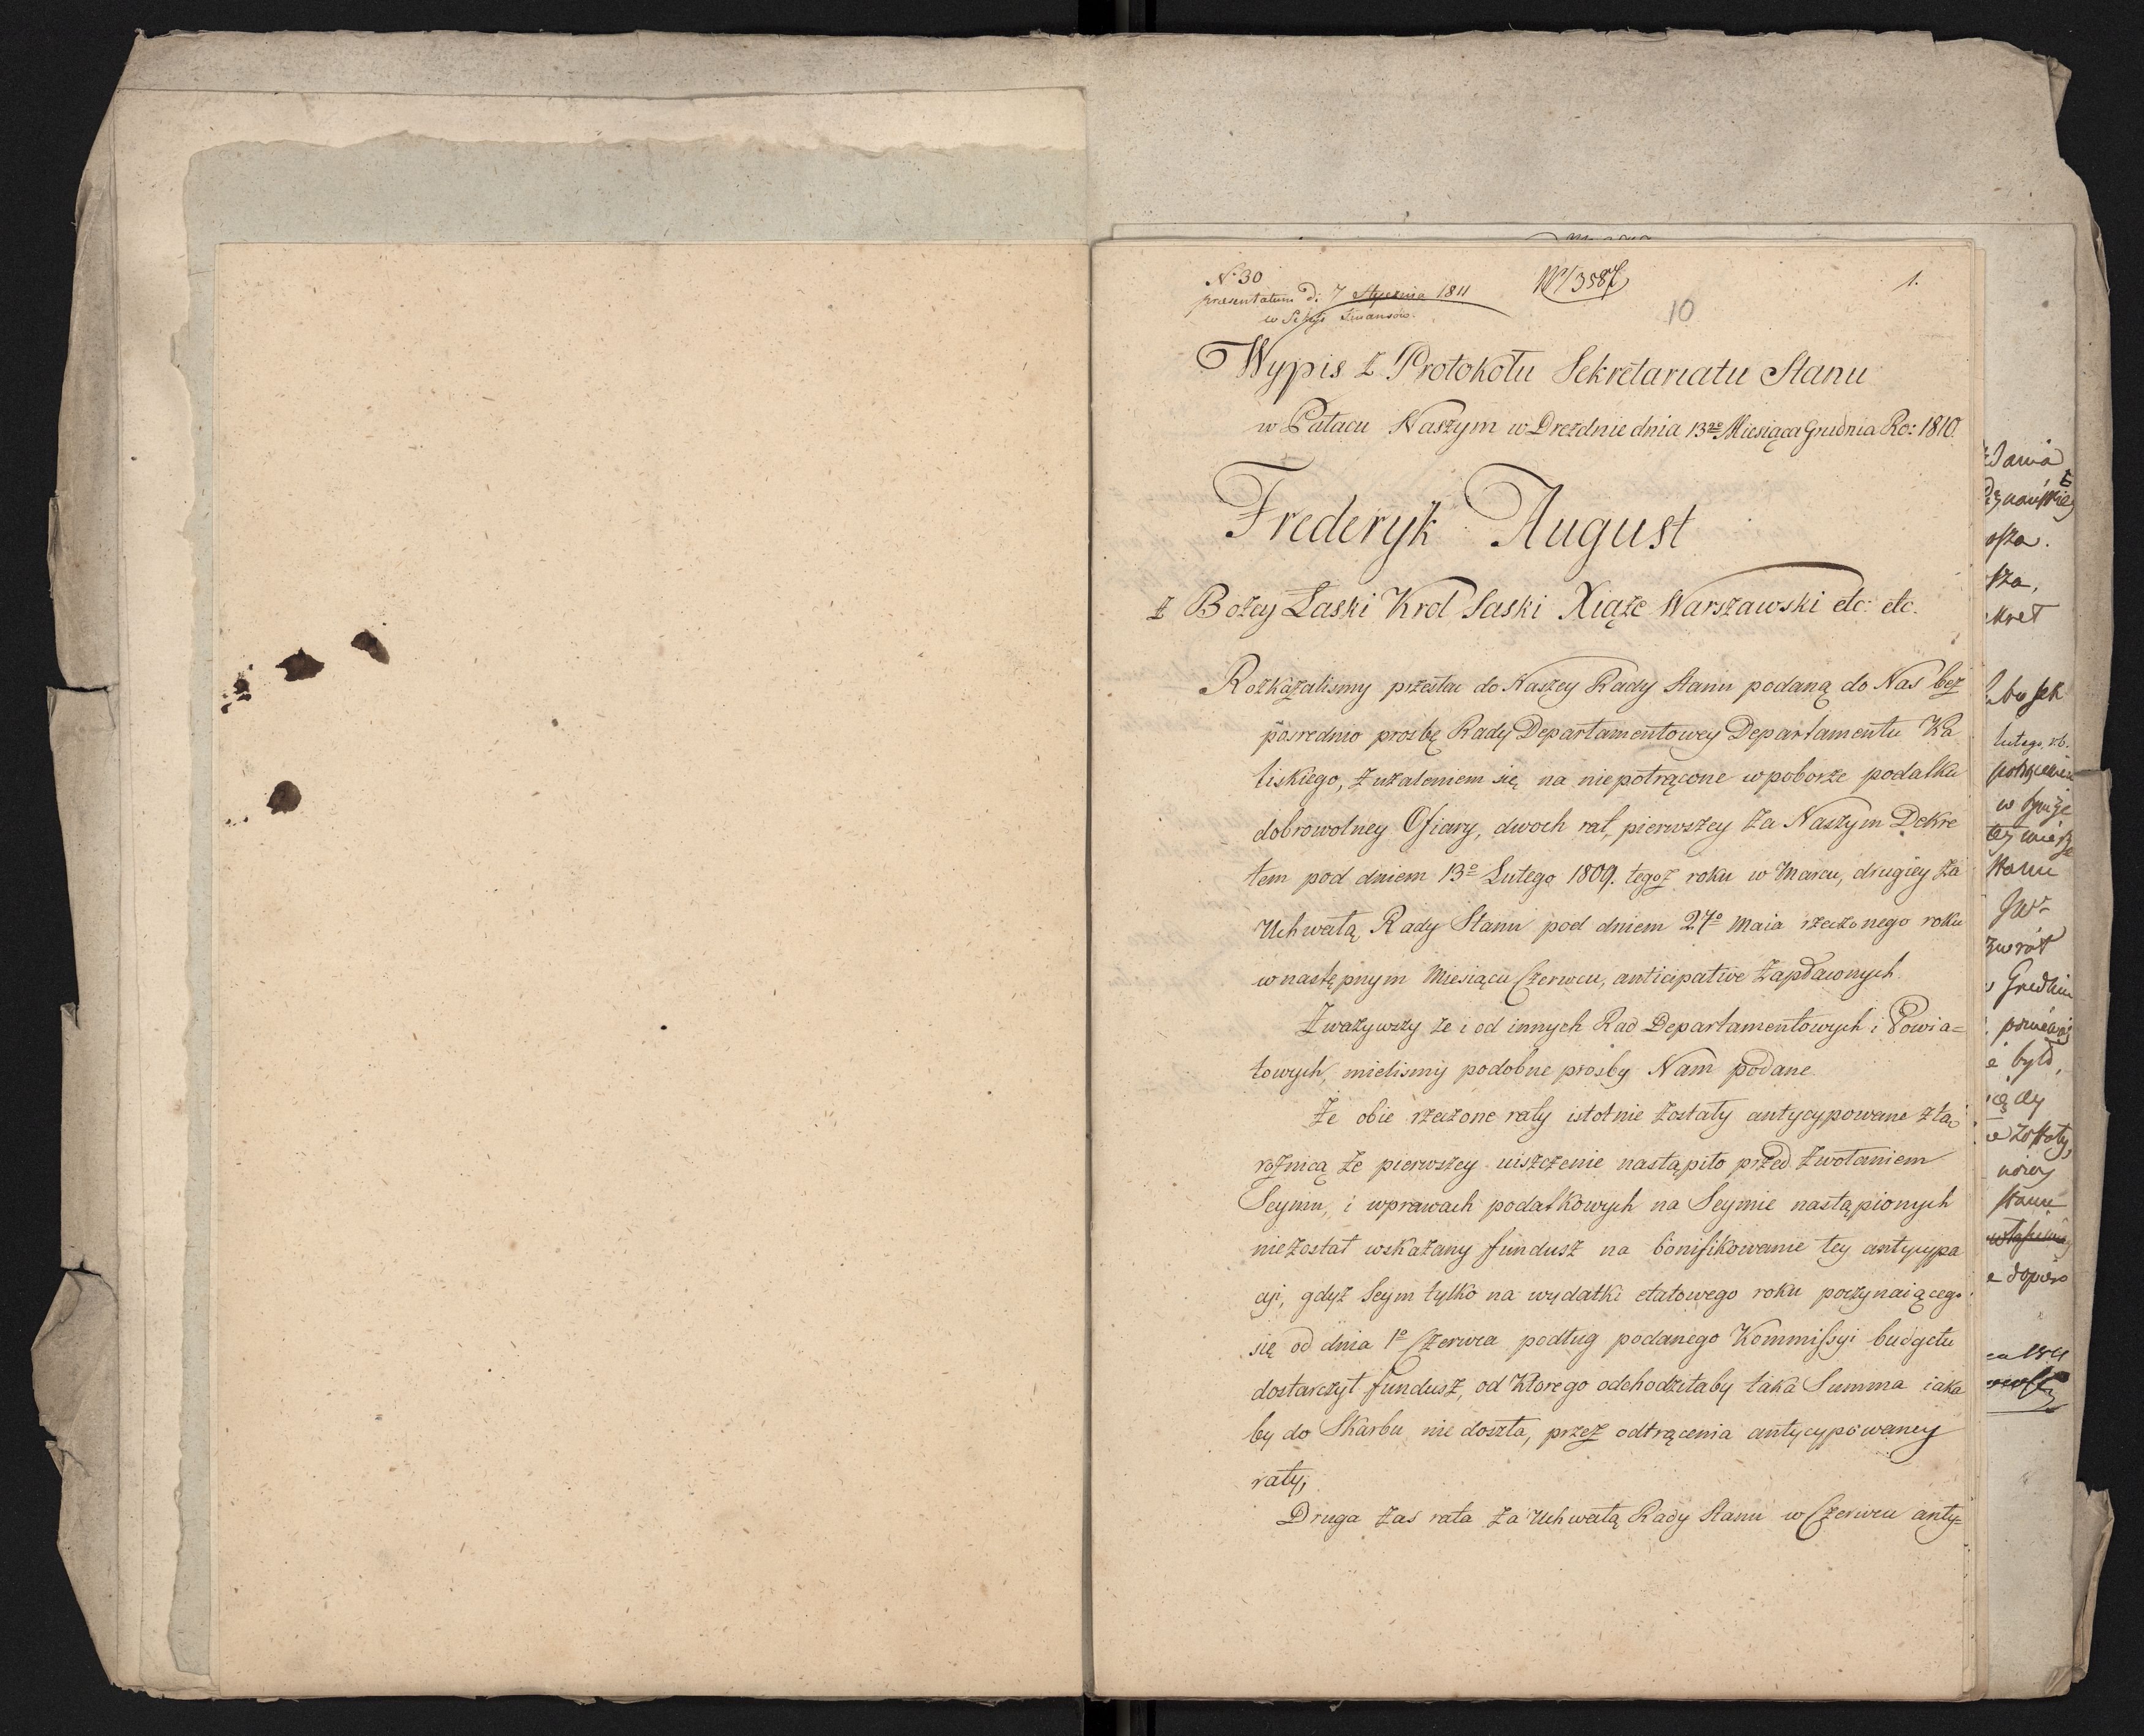 N. 30
presentatum d: 7 Stycznia 1811
w Sekcyi Finansów.
3587
1.
10
Wypis z Protokołu Sekretariatu Stanu
w Pałacu Naszym w Dreźdnie dnia 13go Miesiąca Grudnia Ro: 1810.
Frederyk August
z Bozey Łaski Krol Saski Xiąże Warszawski etc: etc.
Rozkazalismy przesłac do Naszey Rady Stanu podaną do Nas bez
posrednio prozbę Rady Departamentowey Departamentu Ka
liskiego, z użaleniem się na niepotrącone w poborze podatku
dobrowolney Ofiary, dwoch rat, pierwszey za Naszym Dekre
tem pod dniem 13o Lutego 1809. tegoz roku w Marcu, drugiey za
Uchwałą Rady Stanu pod dniem 27o Maia rzeczonego roku
w następnym Miesiącu Czerwcu, anticipative zapłaconych.
Zwazywszy ze i od innych Rad Departamentowych i Powia=
towych, mielismy podobne prosby Nam podane.
Że obie rzeczone raty istotnie zostały antycypowane z tą
roznicą że pierwszey uiszczenie nastąpiło przed zwołaniem
Seymu, i w prawach podatkowych na Seymie nastąpionych
nie został wskazany fundusz na bonifikowanie tey antycypa
cyi, gdyż Seym tylko na wydatki etatowego roku poczynaiącego
się od dnia 1o Czerwca podług podanego Kommissyi budgetu
dostarczył fundusz, od ktorego odchodziłaby taka Summa iaka
by do Skarbu nie doszła, przez odtrącenia antycypowaney
raty,
Druga zas rata za Uchwałą Rady Stanu w Czerwcu anty=
kret
lutego, r.b.
Stanu
zwrot
było,
Stanu
dopiero